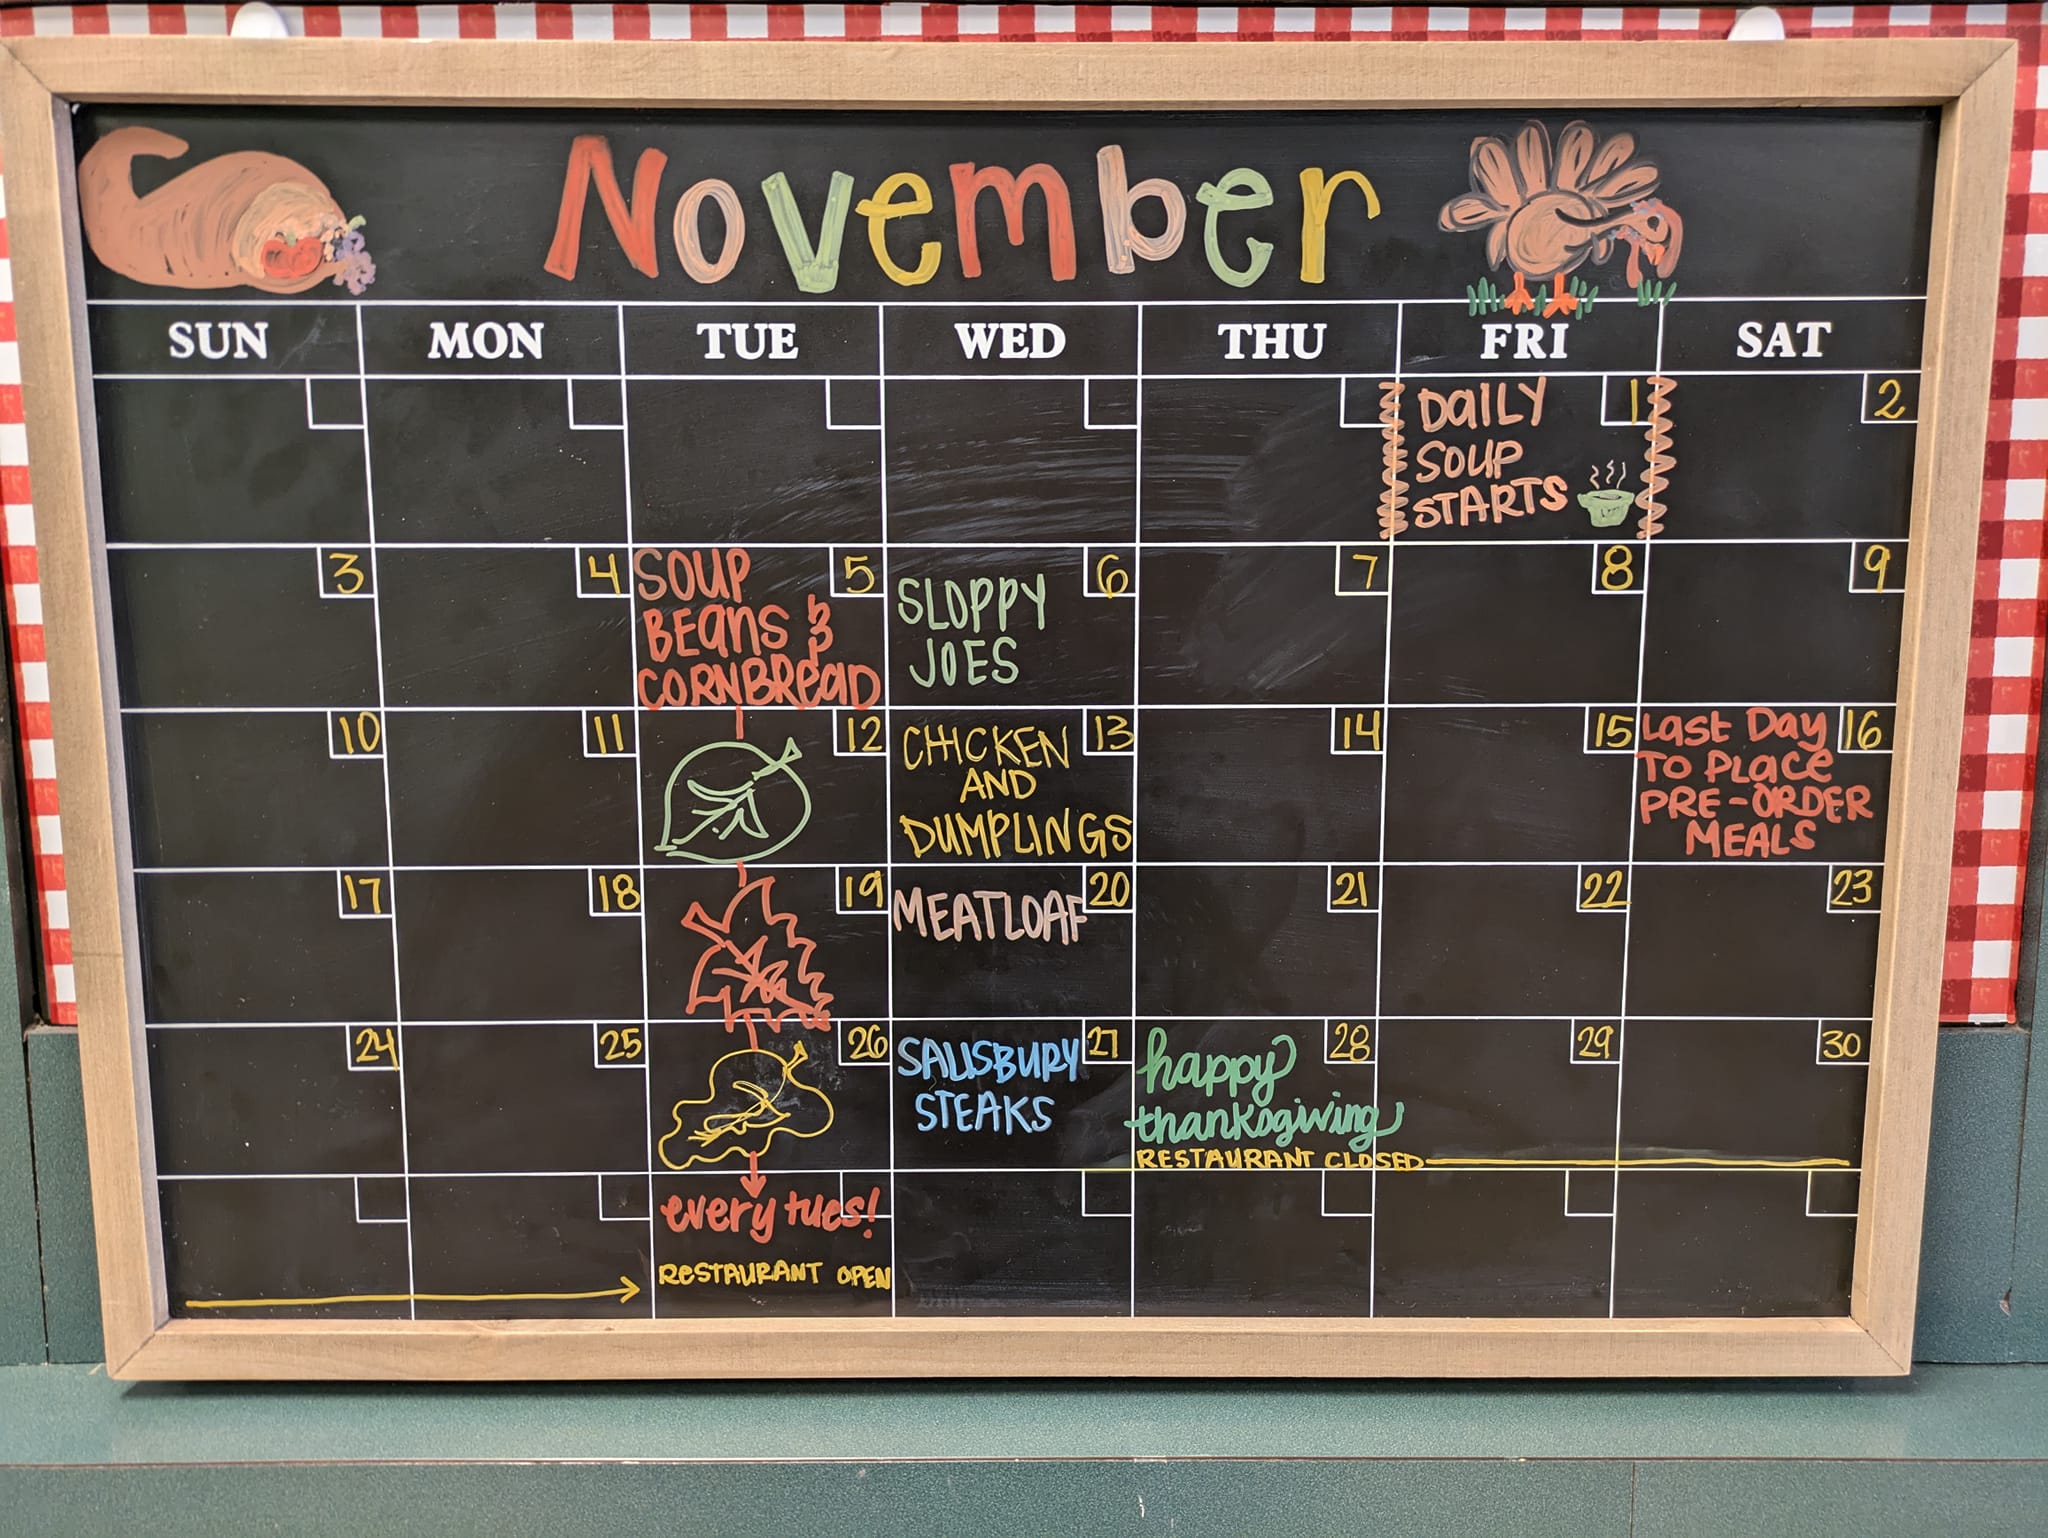 November
SUN MON TUE WED THU FRI SAT
DAILY
SOUP
STARTS
1
2
3
4
SOUP
BEANS &
CORNBREAD
5
SLOPPY
JOES
6
7
8
9
10
11
12
CHICKEN
AND
DUMPLINGS
13
14
15
LAST DAY
TO PLACE
PRE-ORDER
MEALS
16
17
18
19
MEATLOAF
20
21
22
23
24
25
26
SALISBURY
STEAKS
27
happy
thanksgiving
RESTAURANT CLOSED
28
29
30
every tues!
RESTAURANT OPEN